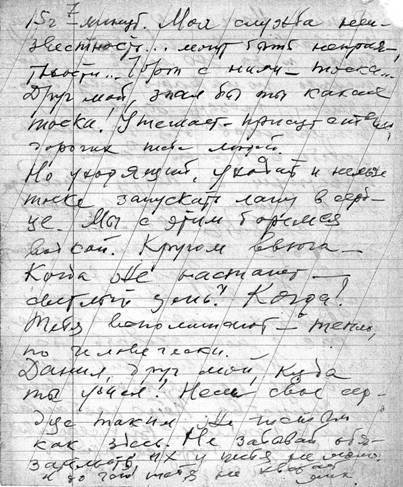 15 г 7 минут. Моя служба неиз-
вестность... могут быть неприя-
тности... Чорт с ними — тоска...
Друг мой, знал бы ты какая
тоска. Утешает — присутствие
дорогих тебе людей.
Но уходящий, уходит и нельзя
тоске запускать лапу в серд-
це. Мы с этим боремся
водкой. Кругом вьюга —
Когда же настанет —
светлый день? Когда!
Тебя вспоминают — тепло,
по человечески.
Данил, друг мой, куда
ты ушел! Неси свое сер-
дце таким же чистым
как здесь. Не забывай обя-
зательств, их у тебя не мало,
и до того тебя не хватает